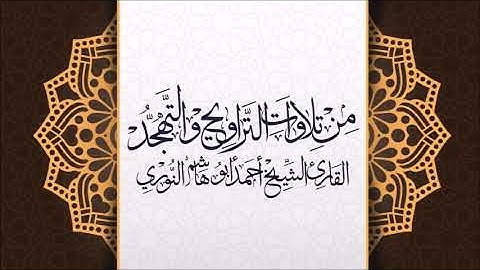 مِنْ تِلَاوَاتِ التَّرَاوِيحِ وَالتَّهَجُّدِ
القارئ الشِّيخ أحمد أبو هاشم النُّوري